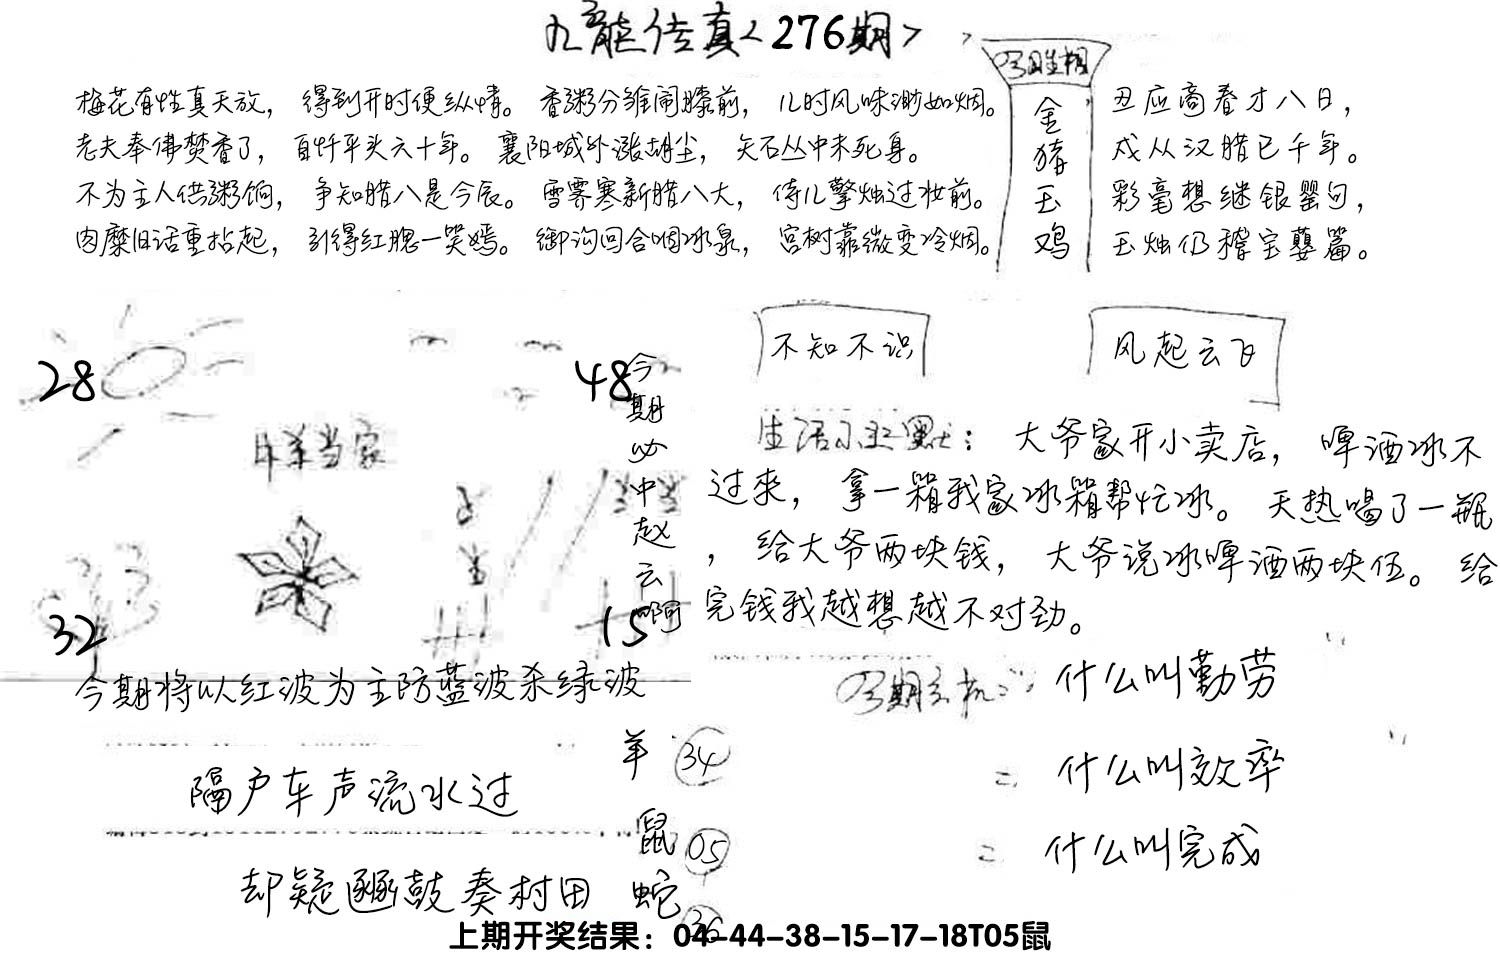 九龙传真<276期>
梅花有性真天放，得到开时便纵情。香粥分雏闹臊前，儿时风味渺如烟。
老夫奉佛焚香了，自忏平头六十年。襄阳城外涨胡尘，矢石丛中未死身。
不为主人供粥饷，争知腊八是今辰。雪霁寒新腊八大，侍儿擎烛过妆前。
肉糜旧话重拈起，引得红腮一笑嫣。御沟回合咽冰泉，宫树霏微变冷烟。
今期生相
金
猪
玉
鸡
丑应商春才八日，
戍从汉腊已千年。
彩毫想继银罂句，
玉烛仍稽宝蘖篇。
28
48
羊当家
32
15
今期必中赵云啊
不知不识
风起云飞
生活小幽默：大爷家开小卖店，啤酒冰不
过来，拿一箱我家冰箱帮忙冰。天热喝了一瓶
，给大爷两块钱，大爷说冰啤酒两块伍。给
完钱我越想越不对劲。
今期将以红波为主防蓝波杀绿波
隔户车声流水过
却疑豳鼓奏村田
羊 34
鼠 05
蛇 36
今期玄机一：什么叫勤劳
二 什么叫效率
三 什么叫完成
上期开奖结果：04-44-38-15-17-18T05鼠